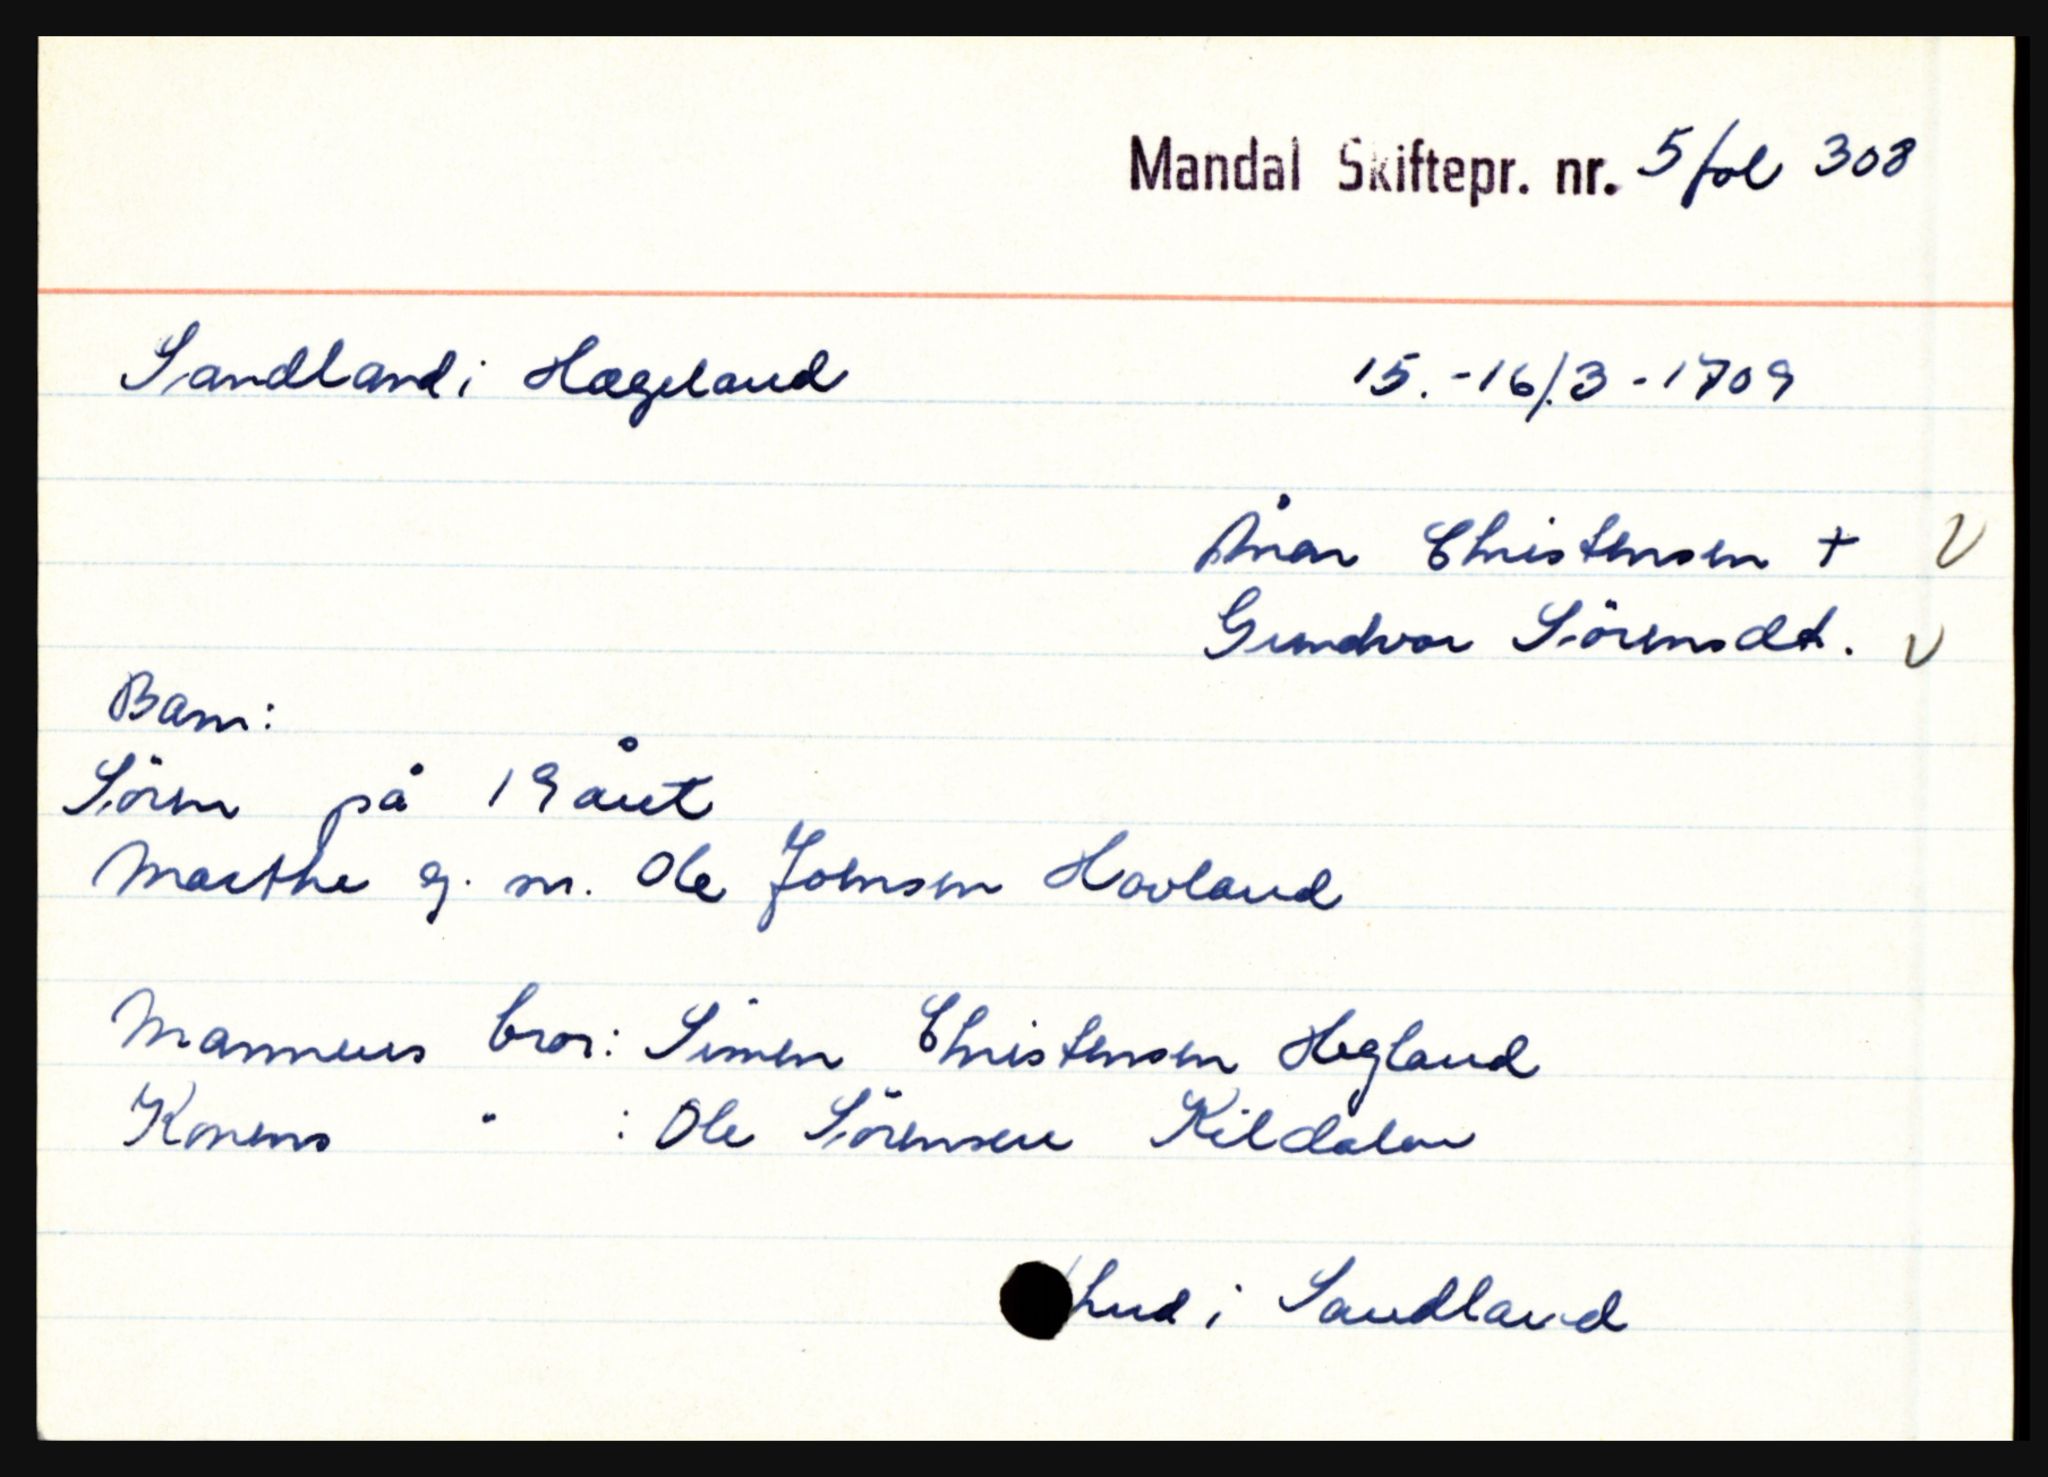 Mandal Skiftepr. nr. 5 fol 308
Sandland i Hægeland 15.-16/3-1709
Ånon Christensen +
Gundvor Sörensdt.
Barn:
Sören på 19 året
Marthe g. m. Ole Joensen Hovland
Mannens bror: Simen Christensen Hegland
Konens " : Ole Sörensen Kildalen
hud i Sandland